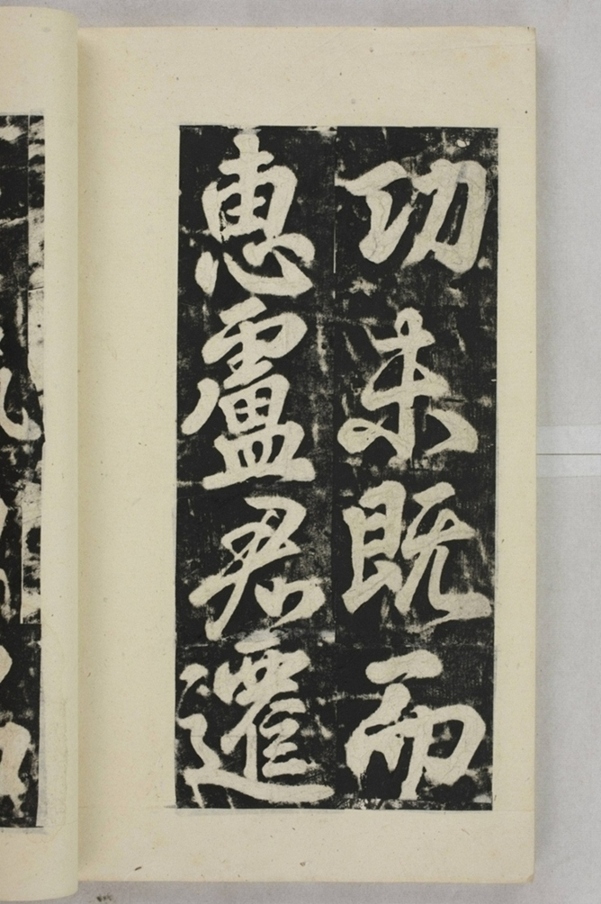 功未既而
惠盧君遷